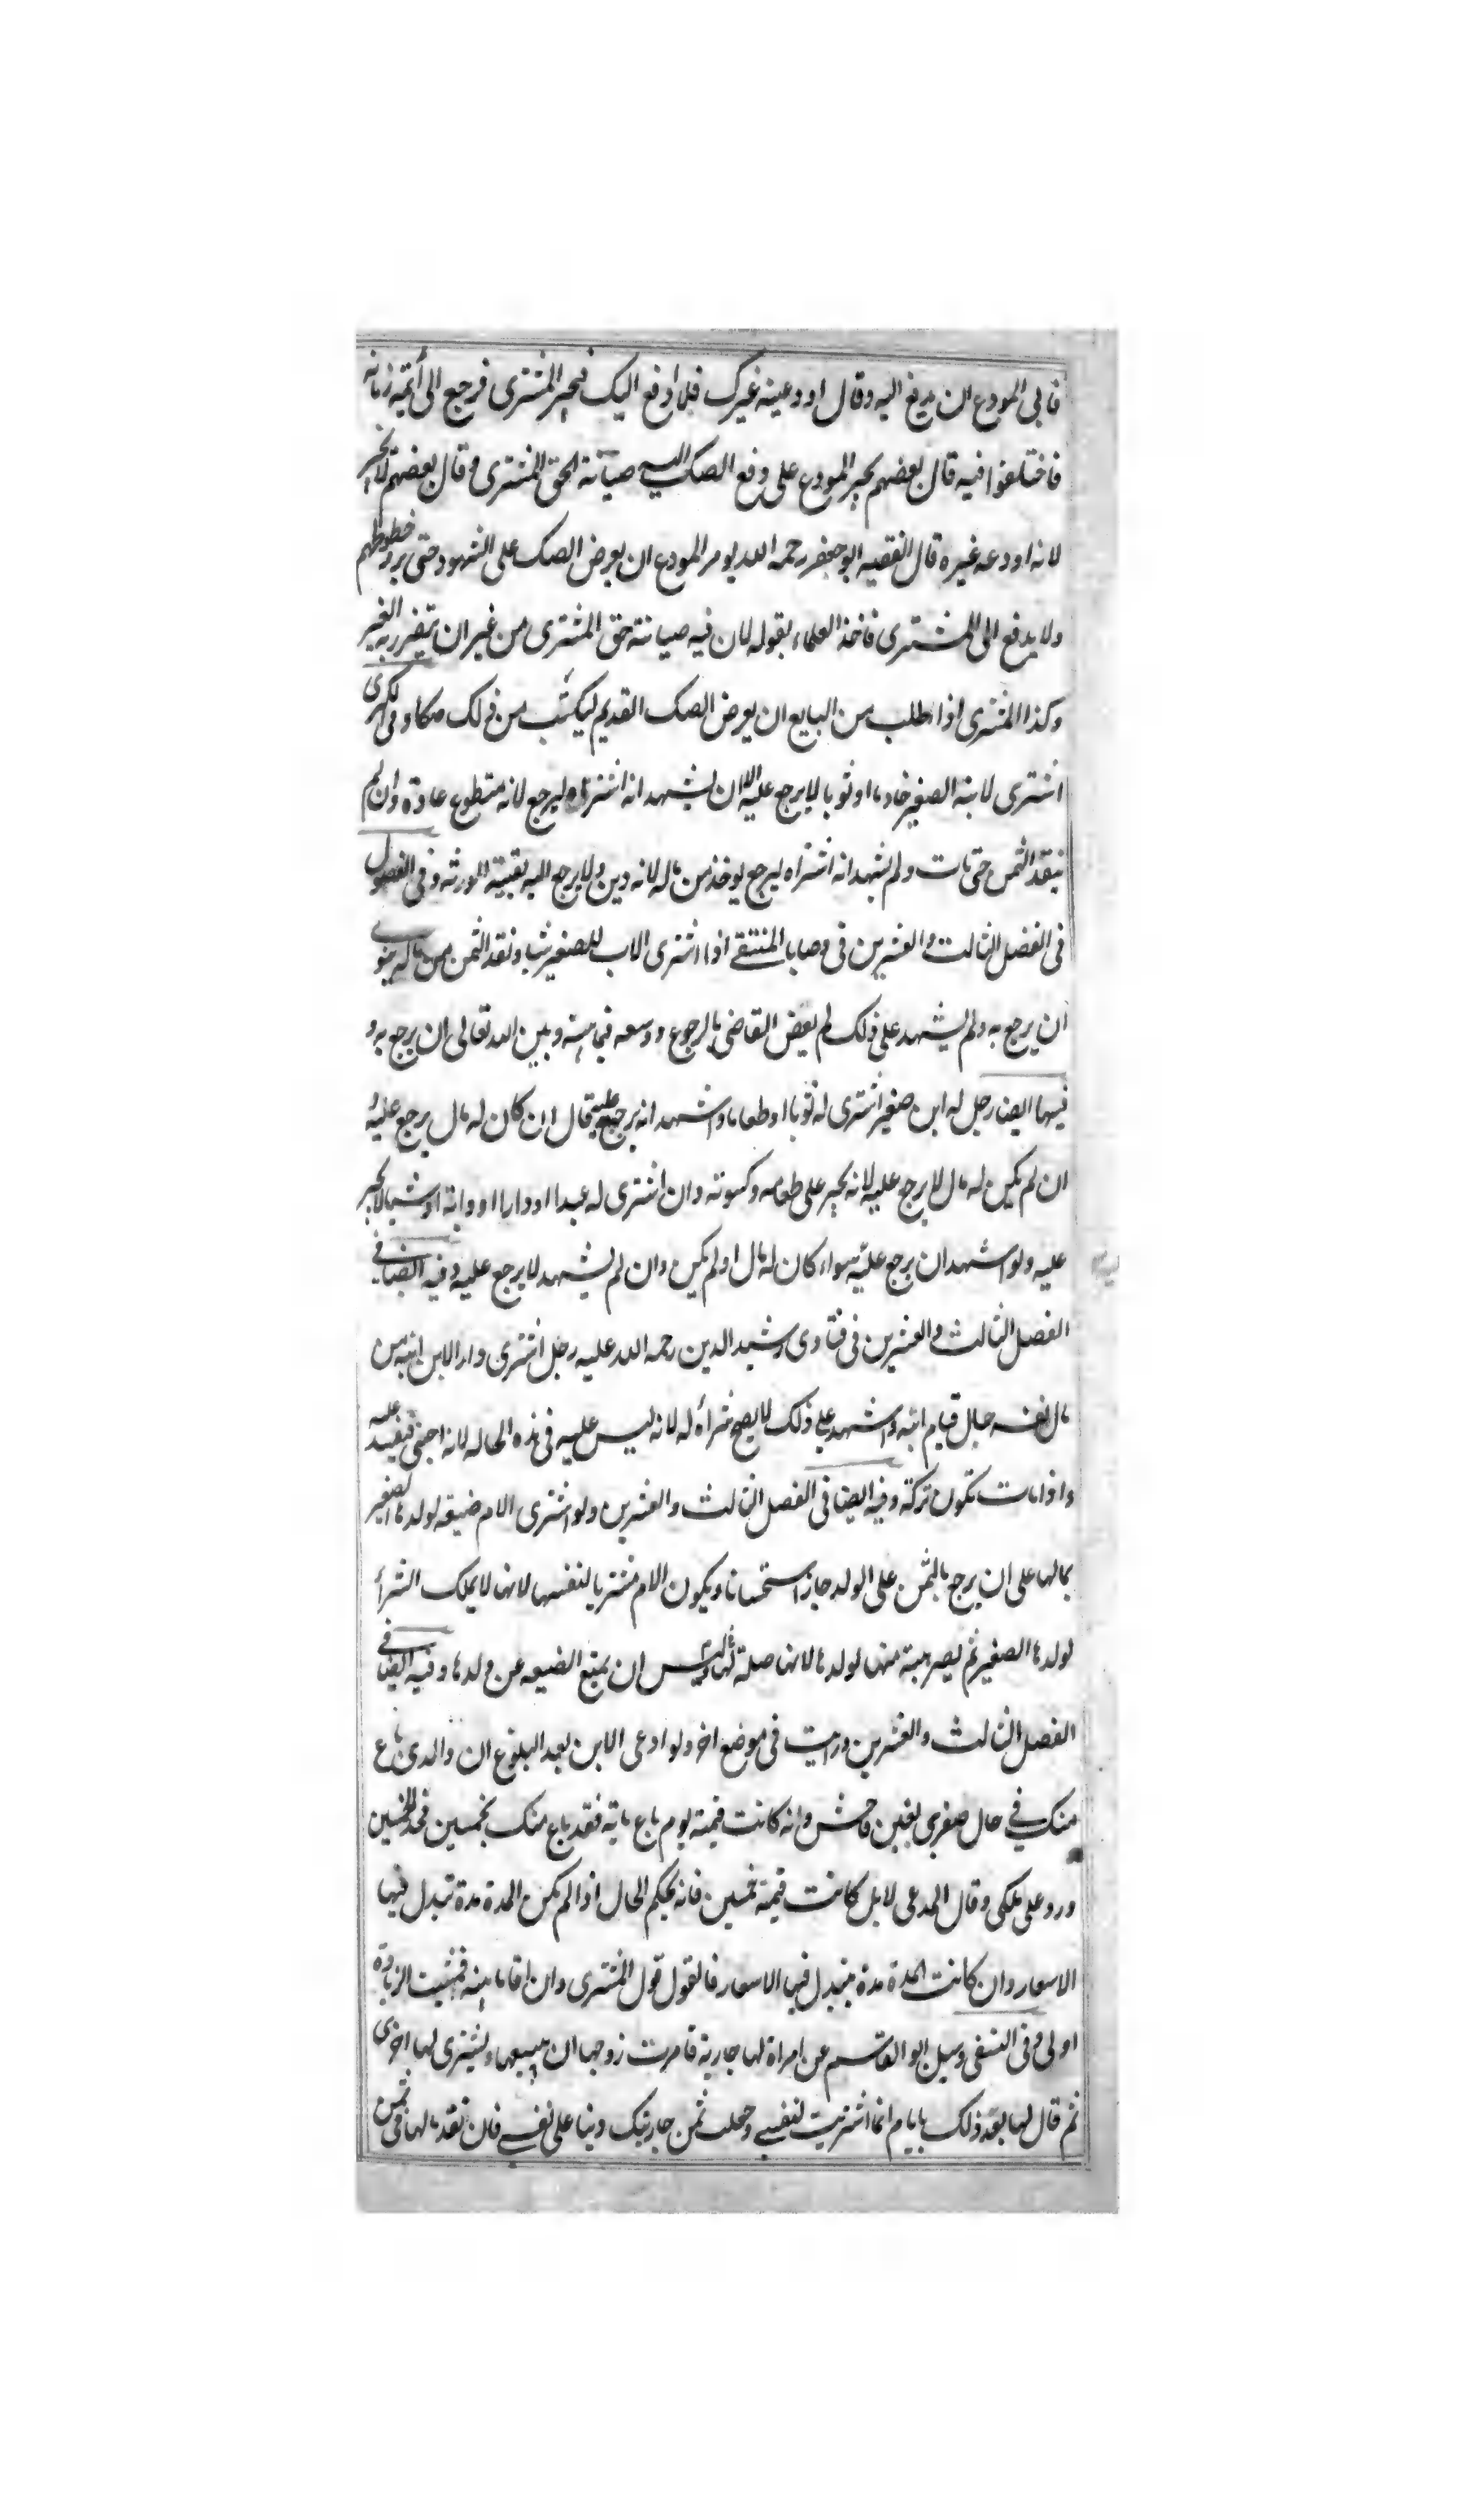 فابى المودع ان يدفع اليه وقال اودعنيه غيرك فلا ادفع اليك فتحير المشترى فرجع الى أئمة زمانه
فاختلفوا فيه قال بعضهم يجبر المودع على دفع الصك اليه صيانة لحق المشترى وقال بعضهم لا يجبر
لانه اودعه غيره قال الفقيه ابو جعفر رحمه الله يومر المودع ان يعرض الصك على الشهود حتى يروا خطوطهم
ولا يدفع الى المشترى فاخذ العلماء بقوله لان فيه صيانة حق المشترى من غير ان يتضرر به الغير
وكذا المشترى اذا طلب من البايع ان يعرض الصك القديم ليكتب من ذلك صكا وفى الكبرى
اشترى لابنه الصغير خادما او ثوبا لا يرجع عليه الا ان يشهد انه اشتراه ليرجع لانه متطوع عادة وان لم
ينقد الثمن حتى مات ولم يشهد انه اشتراه ليرجع يوخذ من ماله لانه دين ولا يرجع اليه بقية الورثة وفى الفصول
فى الفصل الثالث والعشرين فى وصايا المنتقى اذا اشترى الاب للصغير شيا ونقد الثمن من ماله ينوى
ان يرجع به ولم يشهد على ذلك لم يقض القاضى بالرجوع ووسعه فيما بينه وبين الله تعالى ان يرجع به و
فيها ايضا رجل له ابن صغير اشترى له ثوبا او طعاما واشهد انه يرجع عليه قال ان كان له مال يرجع عليه و
ان لم يكن له مال لا يرجع عليه لانه يجبر على طعامه وكسوته وان اشترى له عبدا او دارا او دابة او شيا لا يجبر
عليه ولو اشهد ان يرجع عليه سواء كان له مال او لم يكن وان لم يشهد لا يرجع عليه وفيه ايضا فى
الفصل الثالث والعشرين فى فتاوى رشيد الدين رحمه الله عليه رجل اشترى دارا لابن ابنه من
مال نفسه حال قيام ابنه واشهد على ذلك لا يصح شرأه له لانه ليس عليه فى هذه الحاله لانه اجنبى فينفذ عليه
واذا مات تكون تركة وفيه ايضا فى الفصل الثالث والعشرين ولو اشترى الام ضيعه لولدها الصغير
بمالها على ان يرجع بالثمن على الولد جاز استحسانا ويكون الام مشتريا لنفسها لانها لا يملك الشرأ
لولدها الصغير ثم يصير هبة منها لولدها لانها صلة لها وليس ان يمنع الضيعه عن ولدها وفيه ايضا فى
الفصل الثالث والعشرين ورايت فى موضع اخر ولو ادعى الابن بعد البلوغ ان والدى باع
منك فى حال صغرى بغبن فاحش وانه كانت قيمته يوم باع ماية فقد باع منك بخمسين فخذ الخمسين
ورد على ملكى وقال المدعى لا بل كانت قيمته خمسين فانه يحكم الحال اذا لم يكن المدة مدة تبدل فيها
الاسعار وان كانت المدة مدة يتبدل فيها الاسعار فالقول قول المشترى وان اقاما بينه فمثبت الزيادة
اولى وفى النسفى وسيل ابو القاسم عن امراة لها جارية فامرت زوجها ان يبيعها ويشترى لها اخرى
ثم قال لها بعد ذلك بايام انما اشتريت لنفسى وجعلت ثمن جاريتك دينا على نفسى فان نقد مالها فى ثمن